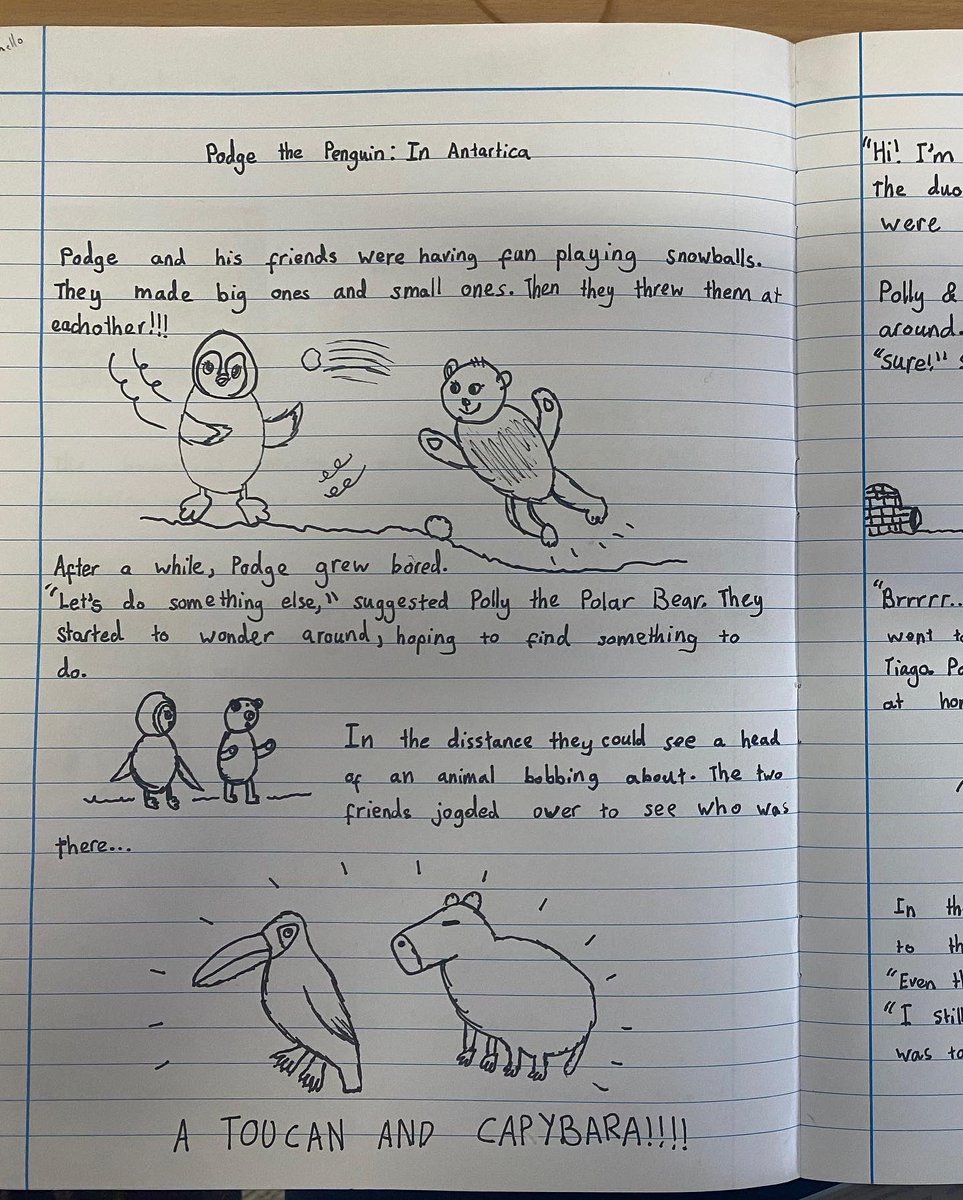 hello
Podge the Penguin: In Antartica
Podge and his friends were having fun playing snowballs.
They made big ones and small ones. Then they threw them at
eachother!!!
After a while, Podge grew bored.
"Let's do something else," suggested Polly the Polar Bear. They
started to wonder around, hoping to find something to
do.
In the disstance they could see a head
of an animal bobbing about. The two
friends jogded over to see who was
there...
A TOUCAN AND CAPYBARA!!!!
"Hi! I'm
The duo
were
Polly &
around.
"Sure!"
"Brrrrr..
went to
Tiago. Po
at hom
In th
to th
"Even th
"I still
was to